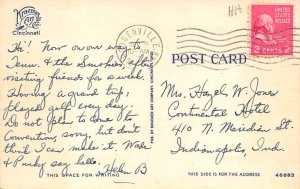 Kraemer Art Co.
Cincinnati
HA
POST CARD
2 CENTS 2
Hi! Now on our way
Tenn. & the Smokies, after
visiting friends for a week.
Having a grand trip,
played golf every day.
Do not plan to come to
Convention, sorry, but don't
think I can make it. Wake
& Pinky say hello.
Helen B
THIS SPACE FOR WRITING
Mrs. Hazel W. Jones
Continental Hotel
410 N. Meridian St.
Indianapolis, Ind.
THIS SIDE IS FOR THE ADDRESS
46883